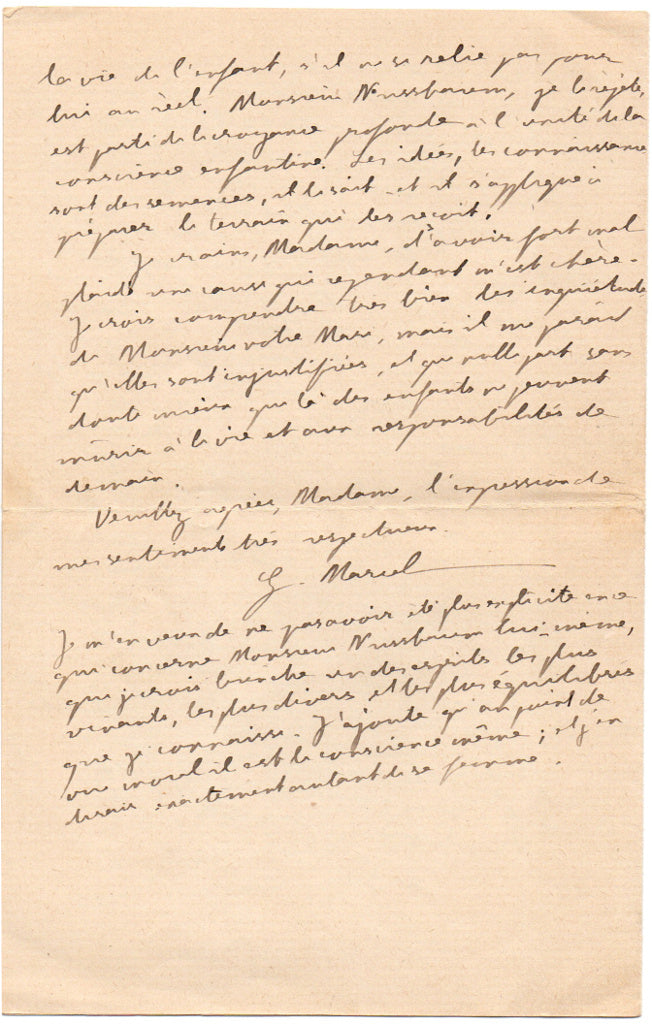 la vie de l'enfant, s'il ne se relie pas pour
lui au réel. Monsieur Nussbaum, je le répète,
est parti de la croyance profonde à l'unité de la
conscience enfantine. Les idées, les connaissances
sont des semences, il le sait et il s'applique à
préparer le terrain qui les reçoit.
Je crains, Madame, d'avoir fort mal
plaidé une cause qui cependant m'est chère.
Je crois comprendre très bien les inquiétudes
de Monsieur votre Mari, mais il me paraît
qu'elles sont injustifiées, et que nulle part sans
doute mieux que là des enfants ne peuvent
mûrir à la vie et aux responsabilités de
demain.
Veuillez agréer, Madame, l'expression de
mes sentiments très respectueux.
G. Marcel
Je m'en veux de ne pas avoir été plus explicite en ce
qui concerne Monsieur Nussbaum lui-même,
que je crois être un des esprits les plus
vivants, les plus divers et les plus équilibrés
que je connaisse. J'ajoute qu'au point de
vue moral il est la conscience même ; et j'en
dirais exactement autant de sa femme.